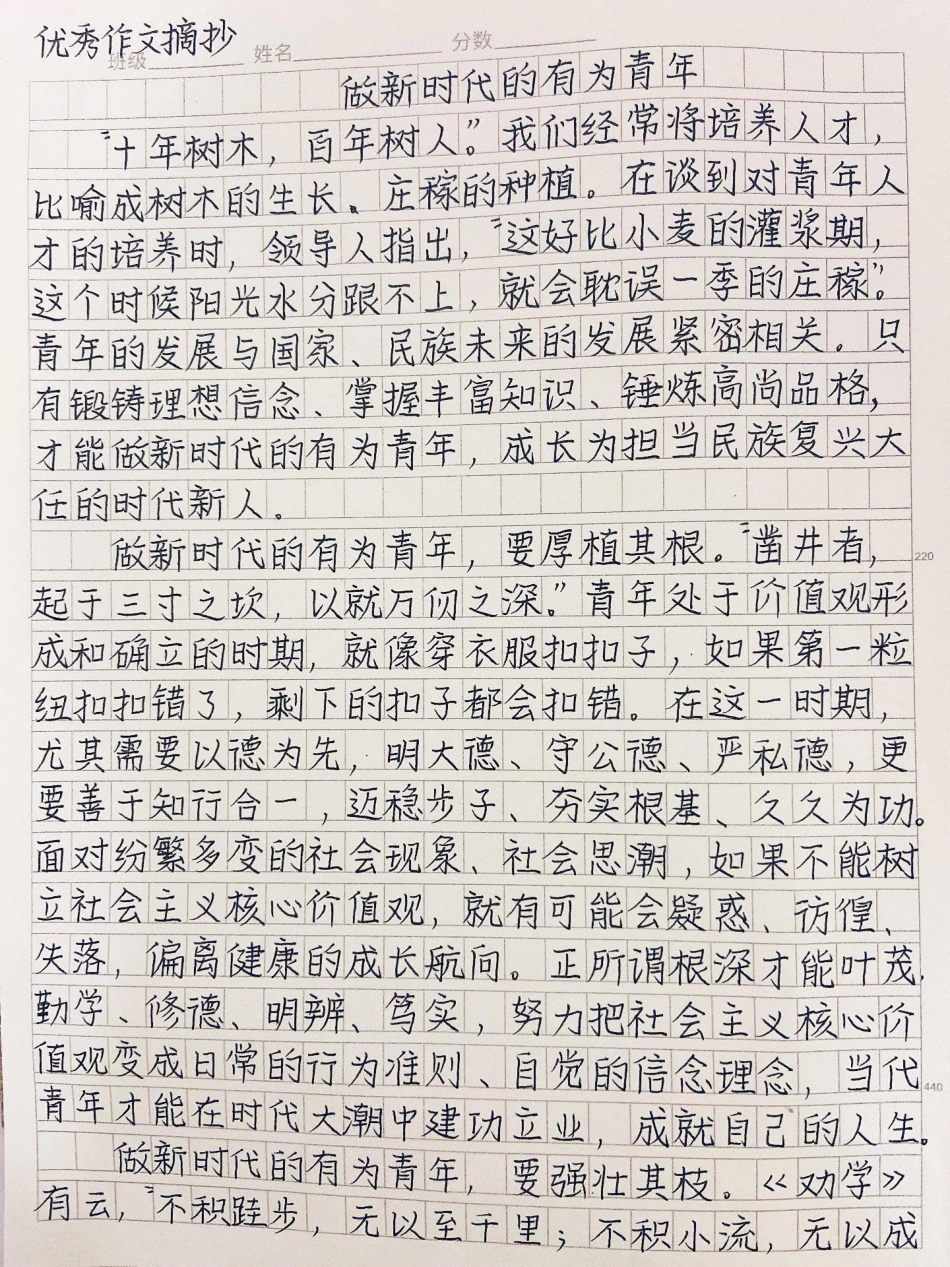 优秀作文摘抄
班级 姓名 分数
做新时代的有为青年
“十年树木，百年树人。”我们经常将培养人才，
比喻成树木的生长、庄稼的种植。在谈到对青年人
才的培养时，领导人指出，“这好比小麦的灌浆期，
这个时候阳光水分跟不上，就会耽误一季的庄稼”。
青年的发展与国家、民族未来的发展紧密相关。只
有锻铸理想信念、掌握丰富知识、锤炼高尚品格，
才能做新时代的有为青年，成长为担当民族复兴大
任的时代新人。
做新时代的有为青年，要厚植其根。“凿井者，
220
起于三寸之坎，以就万仞之深。”青年处于价值观形
成和确立的时期，就像穿衣服扣扣子，如果第一粒
纽扣扣错了，剩下的扣子都会扣错。在这一时期，
尤其需要以德为先，明大德、守公德、严私德，更
要善于知行合一，迈稳步子、夯实根基、久久为功。
面对纷繁多变的社会现象、社会思潮，如果不能树
立社会主义核心价值观，就有可能会疑惑、彷徨、
失落，偏离健康的成长航向。正所谓根深才能叶茂，
勤学、修德、明辨、笃实，努力把社会主义核心价
值观变成日常的行为准则、自觉的信念理念，当代
440
青年才能在时代大潮中建功立业，成就自己的人生。
做新时代的有为青年，要强壮其枝。《劝学》
有云，“不积跬步，无以至千里；不积小流，无以成